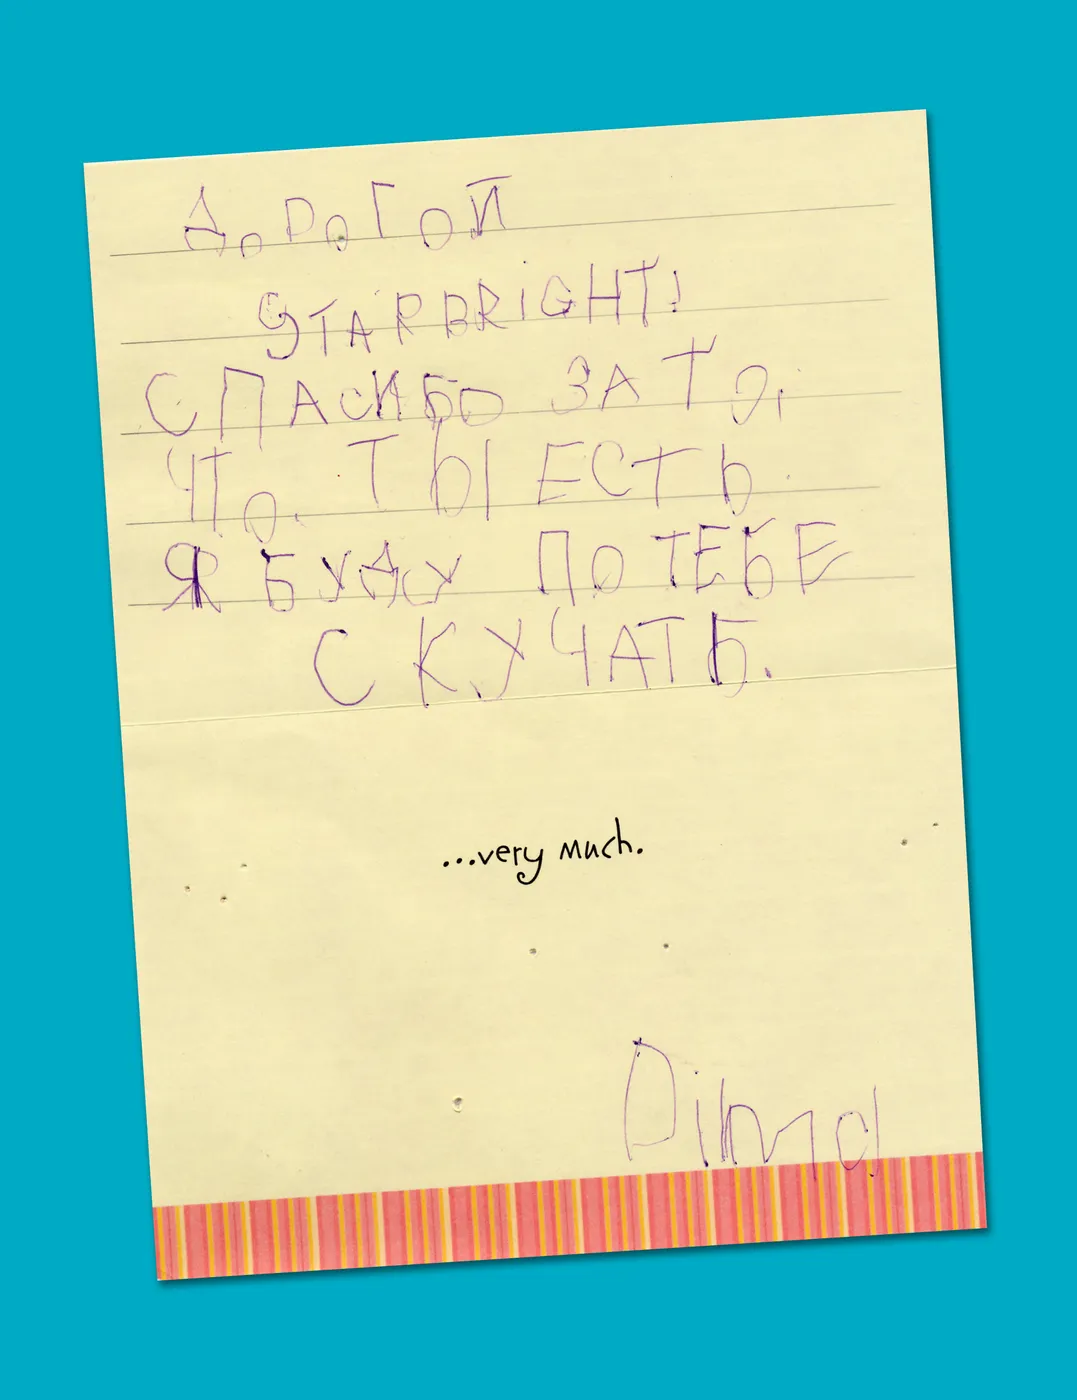 ДОРОГОЙ
STARBRIGHT!
СПАСИБО ЗА ТО,
ЧТО ТЫ ЕСТЬ.
Я БУДУ ПО ТЕБЕ
СКУЧАТЬ.
...very much.